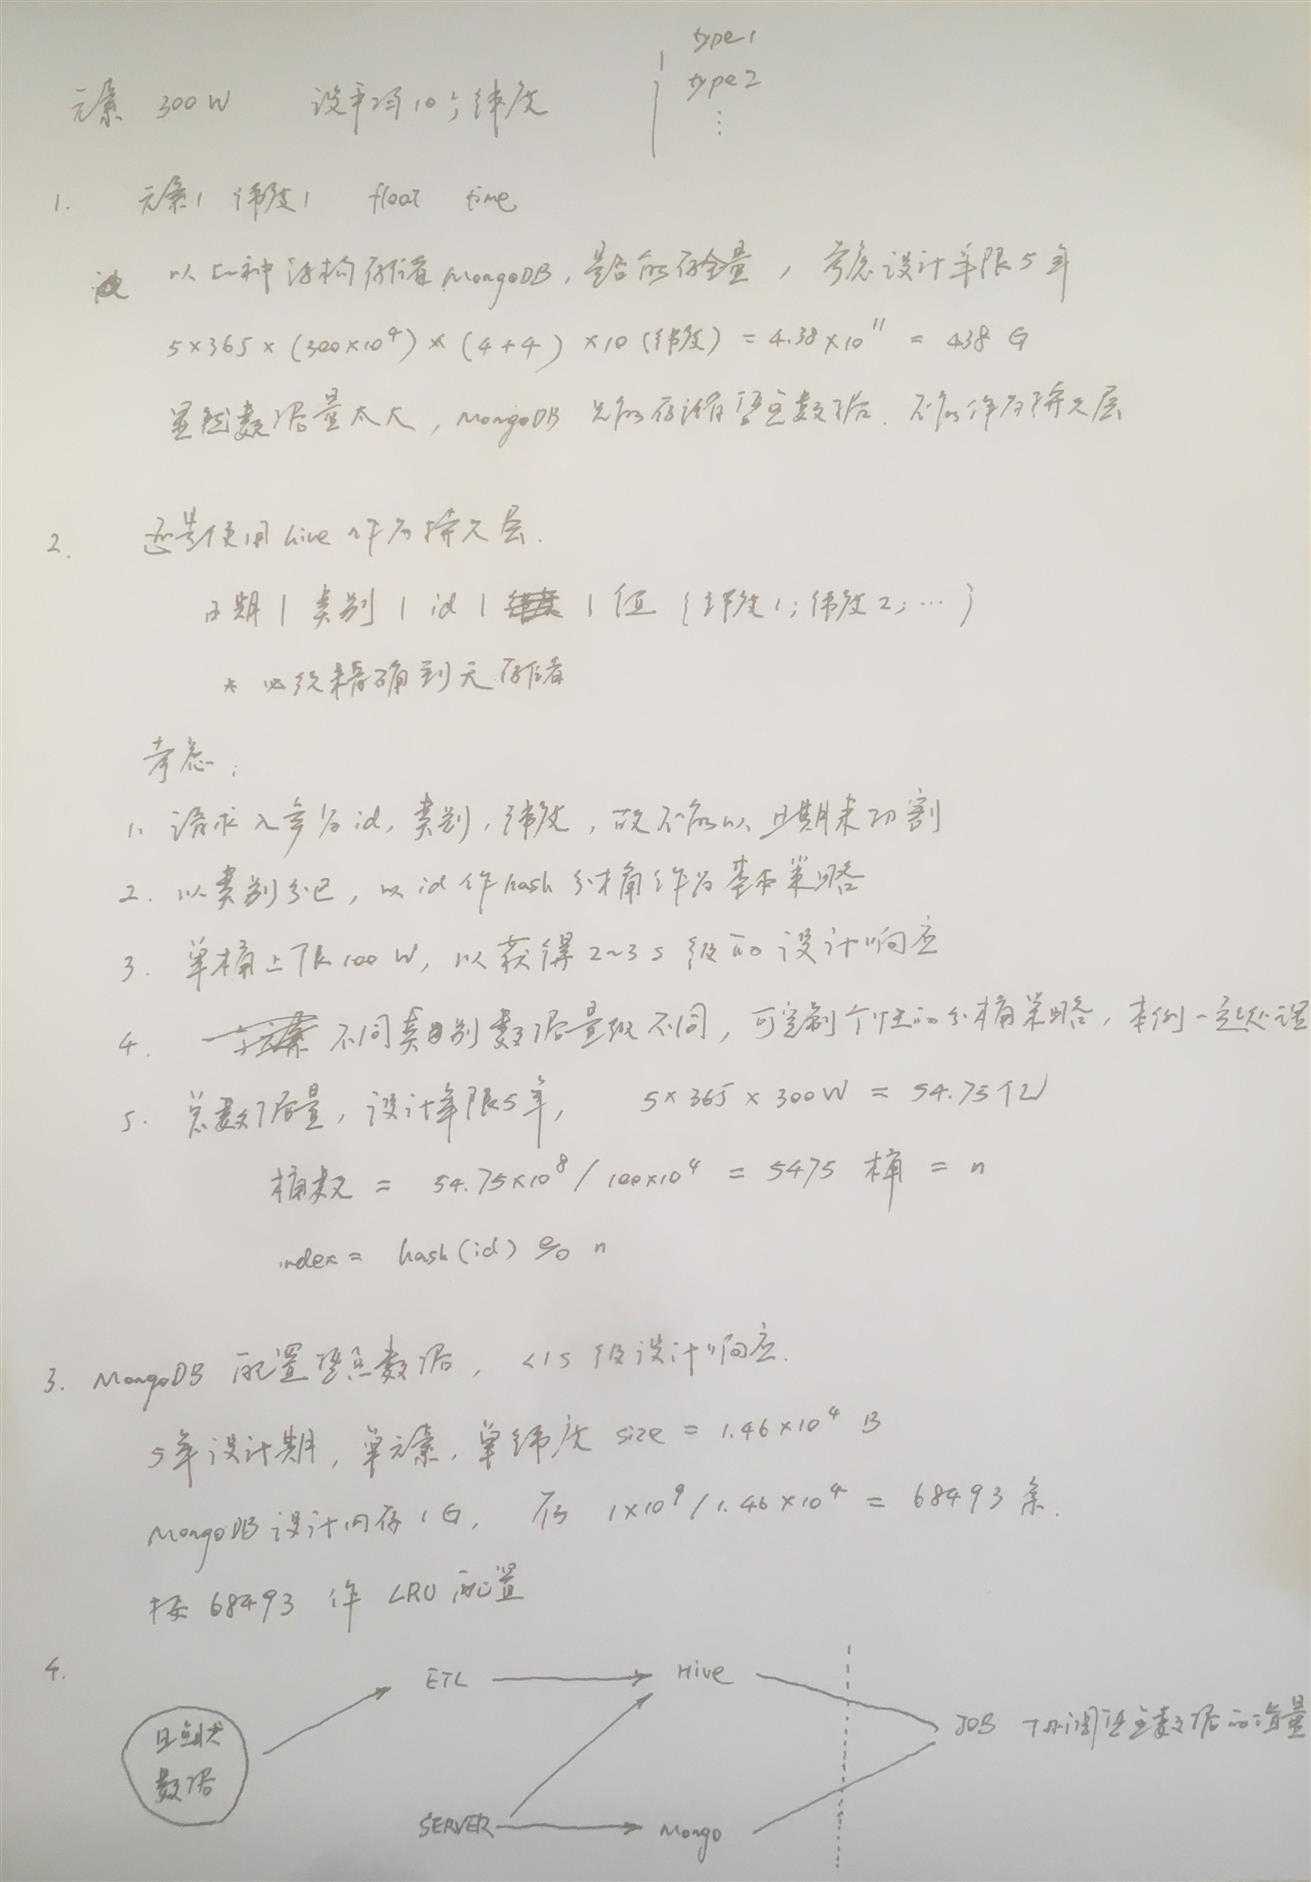 type1
元素 300W 设平均10个纬度 type2
⋮
1. 元素1 纬度1 float time
以此种结构存储MongoDB,是否能存全量,考虑设计年限5年
5×365×(300×10⁴)×(4+4)×10(纬度)=4.38×10¹¹=438G
显然数据量太大,MongoDB只能存储热点数据.不能作为持久层
2. 还是使用hive作为持久层.
日期|类别|id| |值{纬度1;纬度2;…}
* 必须精确到天存储
考虑:
1. 请求入参为id,类别,纬度,故不能以日期来切割
2. 以类别分区,以id作hash分桶作为基本策略
3. 单桶上限100W,以获得2~3s级的设计响应
4. 不同类别数据量级不同,可定制个性的分桶策略,本例一定处理
5. 总数据量,设计年限5年, 5×365×300W=54.75亿
桶数=54.75×10⁸/100×10⁴=5475桶=n
index=hash(id)%n
3. MongoDB配置热点数据,<1s级设计响应.
5年设计期,单元素,单纬度size=1.46×10⁴B
MongoDB设计内存1G, 存1×10⁹/1.46×10⁴=68493条.
按68493作LRU配置
4. ETL Hive
数据
JOB
SERVER Mongo